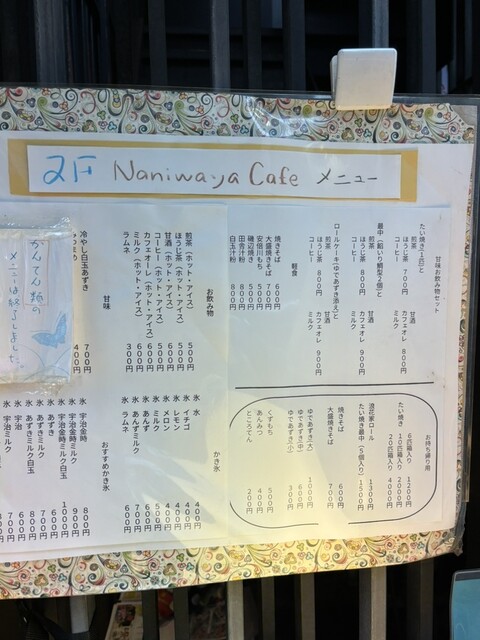 2F Naniwaya Cafe メニュー
甘味お飲み物セット
たい焼き1匹と
煎茶
ほうじ茶 700円
コーヒー
甘酒
カフェオレ 800円
ミルク
最中(餡いり鯛型2個)と
煎茶
ほうじ茶 800円
コーヒー
甘酒
カフェオレ 900円
ミルク
ロールケーキ(ゆであずき添え)と
煎茶
ほうじ茶 800円
コーヒー
甘酒
カフェオレ 900円
ミルク
軽食
焼きそば 600円
大盛焼きそば 700円
安倍川もち 500円
磯辺焼き 500円
田舎汁粉 800円
白玉汁粉 800円
お飲み物
煎茶(ホット・アイス) 500円
ほうじ茶(ホット・アイス) 500円
甘酒(ホット・アイス)
コーヒー(ホット・アイス)
カフェオレ(ホット・アイス) 600円
ミルク(ホット・アイス)
ラムネ 300円
甘味
冷やし白玉あずき 700円
400円
かんてん類の
メニューは終了しました。
お持ち帰り用
たい焼き 6匹箱入り 1200円
10匹箱入り 2000円
20匹箱入り 4000円
浪花家ロール 1300円
たい焼き最中(5個入り) 1500円
焼きそば 600円
大盛焼きそば 700円
ゆであずき(大)
ゆであずき(中) 600円
ゆであずき(小) 300円
くずもち 500円
あんみつ 400円
ところてん
かき氷
氷 水 400円
氷 イチゴ
氷 レモン
氷 メロン
氷 ミルク
氷 あんず
氷 あんずミルク 700円
氷 ラムネ 600円
おすすめかき氷
氷 宇治金時 800円
氷 宇治金時ミルク 900円
氷 宇治金時ミルク白玉 1000円
氷 あずき
氷 あずきミルク
氷 あずきミルク白玉
氷 宇治
氷 宇治ミルク